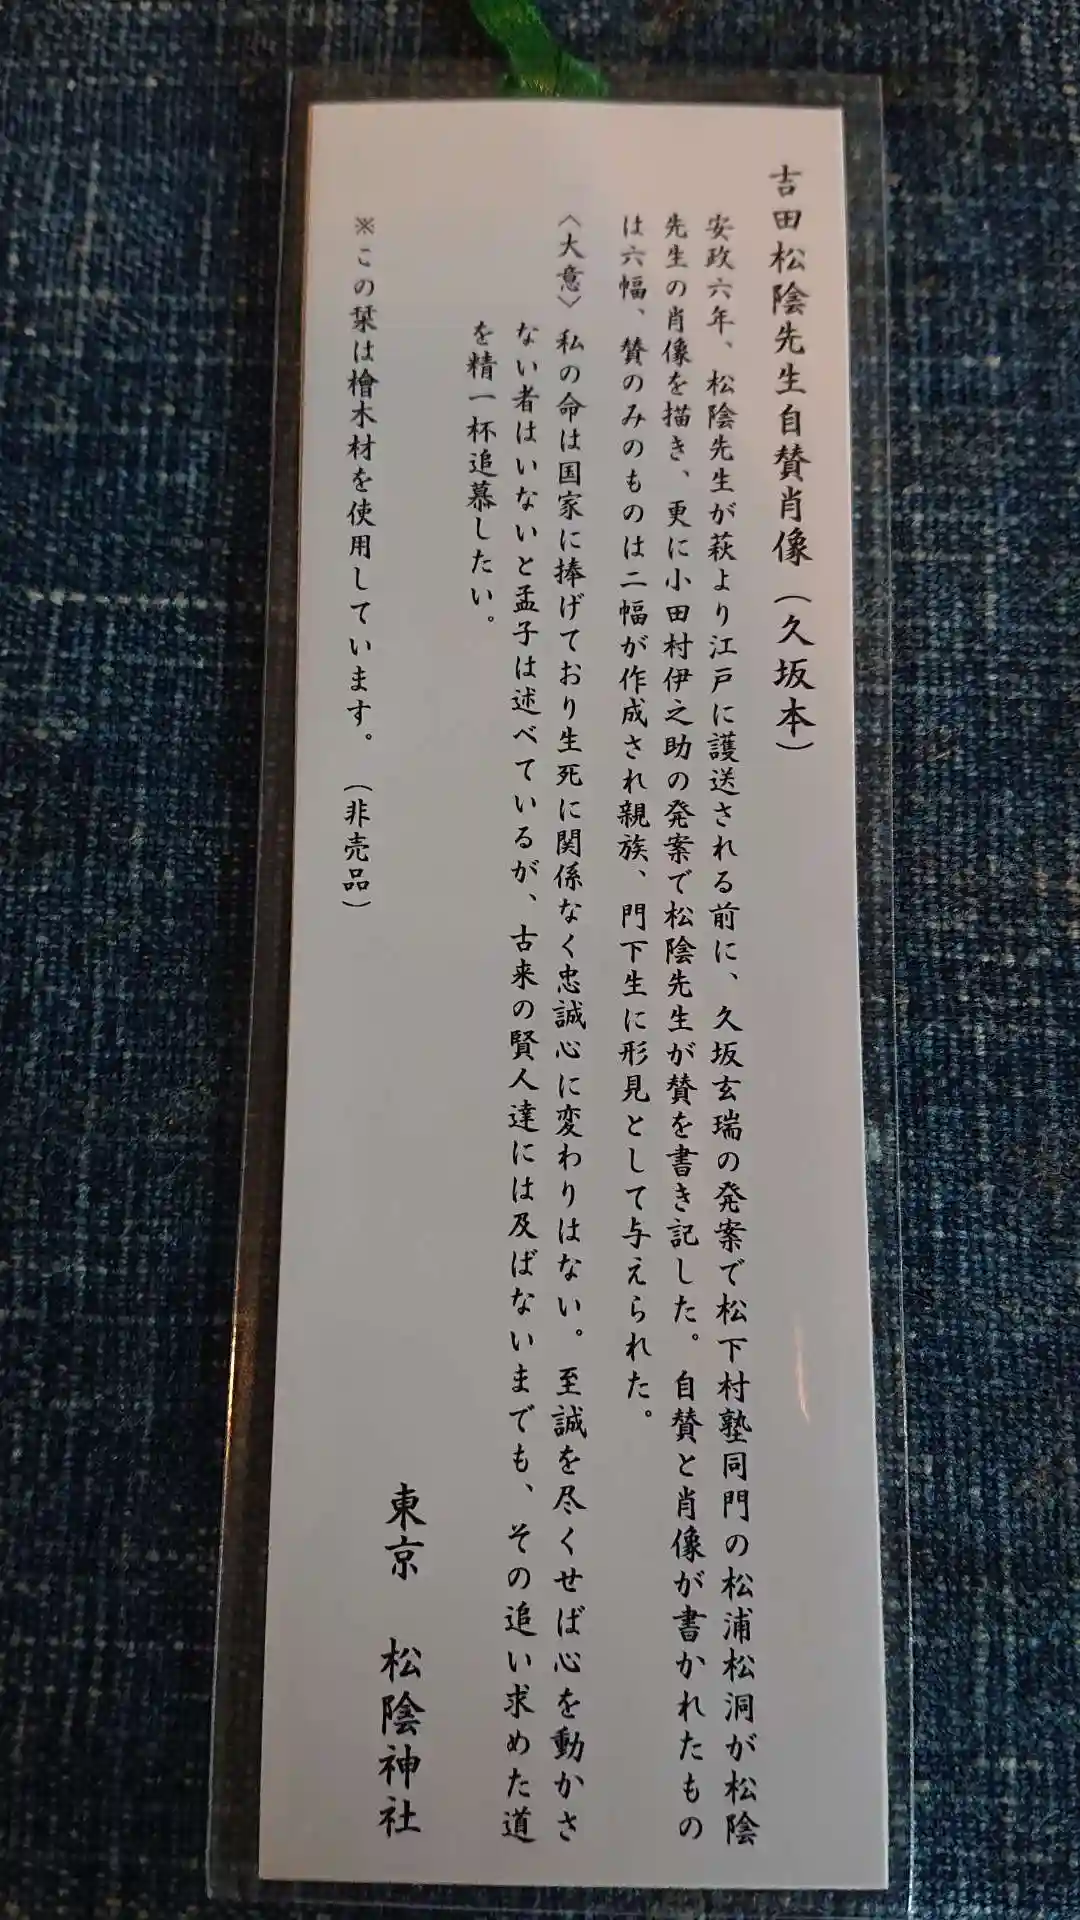 吉田松陰先生自賛肖像（久坂本）
安政六年、松陰先生が萩より江戸に護送される前に、久坂玄瑞の発案で松下村塾同門の松浦松洞が松陰
先生の肖像を描き、更に小田村伊之助の発案で松陰先生が賛を書き記した。自賛と肖像が書かれたもの
は六幅、賛のみのものは二幅が作成され親族、門下生に形見として与えられた。
〈大意〉私の命は国家に捧げており生死に関係なく忠誠心に変わりはない。至誠を尽くせば心を動かさ
ない者はいないと孟子は述べているが、古来の賢人達には及ばないまでも、その追い求めた道
を精一杯追慕したい。
※この栞は檜木材を使用しています。（非売品）
東京　松陰神社